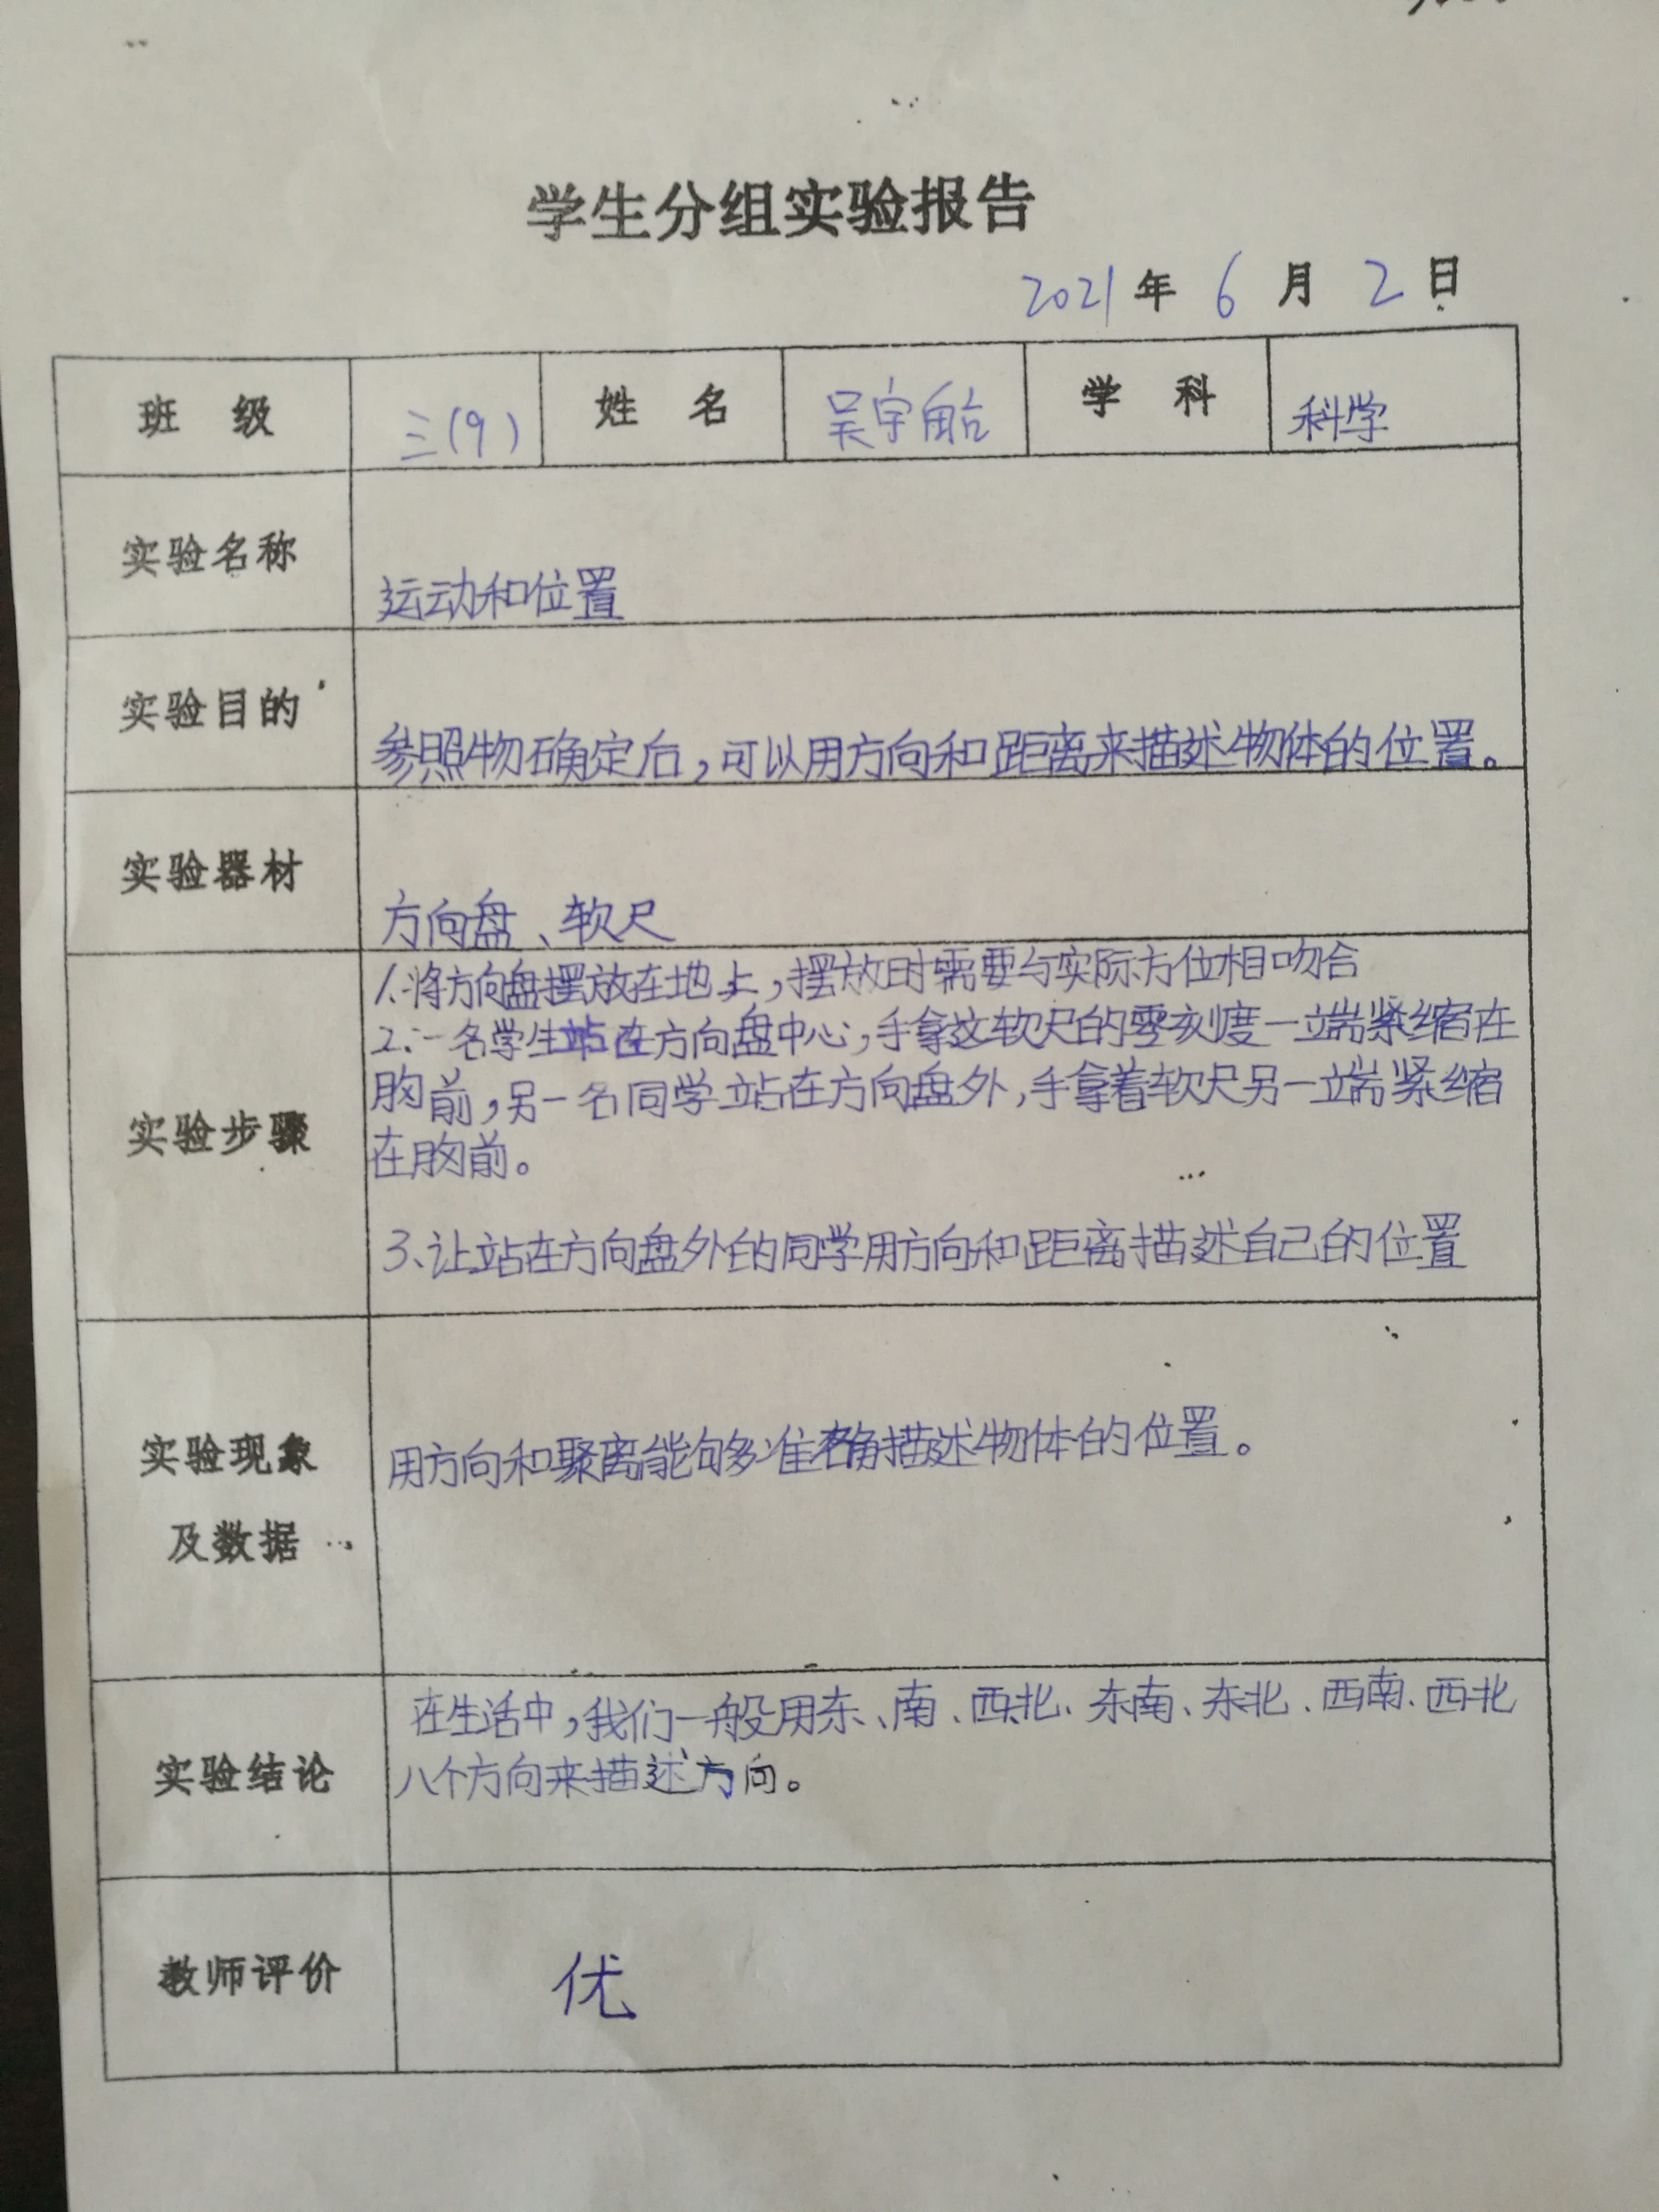 学生分组实验报告
2021年 6 月 2 日
班 级 三(9) 姓 名 吴宇 学 科 科学
实验名称 运动和位置
实验目的 参照物确定后,可以用方向和距离来描述物体的位置。
实验器材 方向盘、软尺
实验步骤
1.将方向盘摆放在地上,摆放时需要与实际方位相吻合
2.一名学生站在方向盘中心,手拿这软尺的零刻度一端紧缩在
胸前,另一名同学站在方向盘外,手拿着软尺另一端紧缩
在胸前。
3、让站在方向盘外的同学用方向和距离描述自己的位置
实验现象
及数据
用方向和聚离能够准确描述物体的位置。
实验结论
在生活中,我们一般用东、南、西北、东南、东北、西南、西北
八个方向来描述方向。
教师评价 优